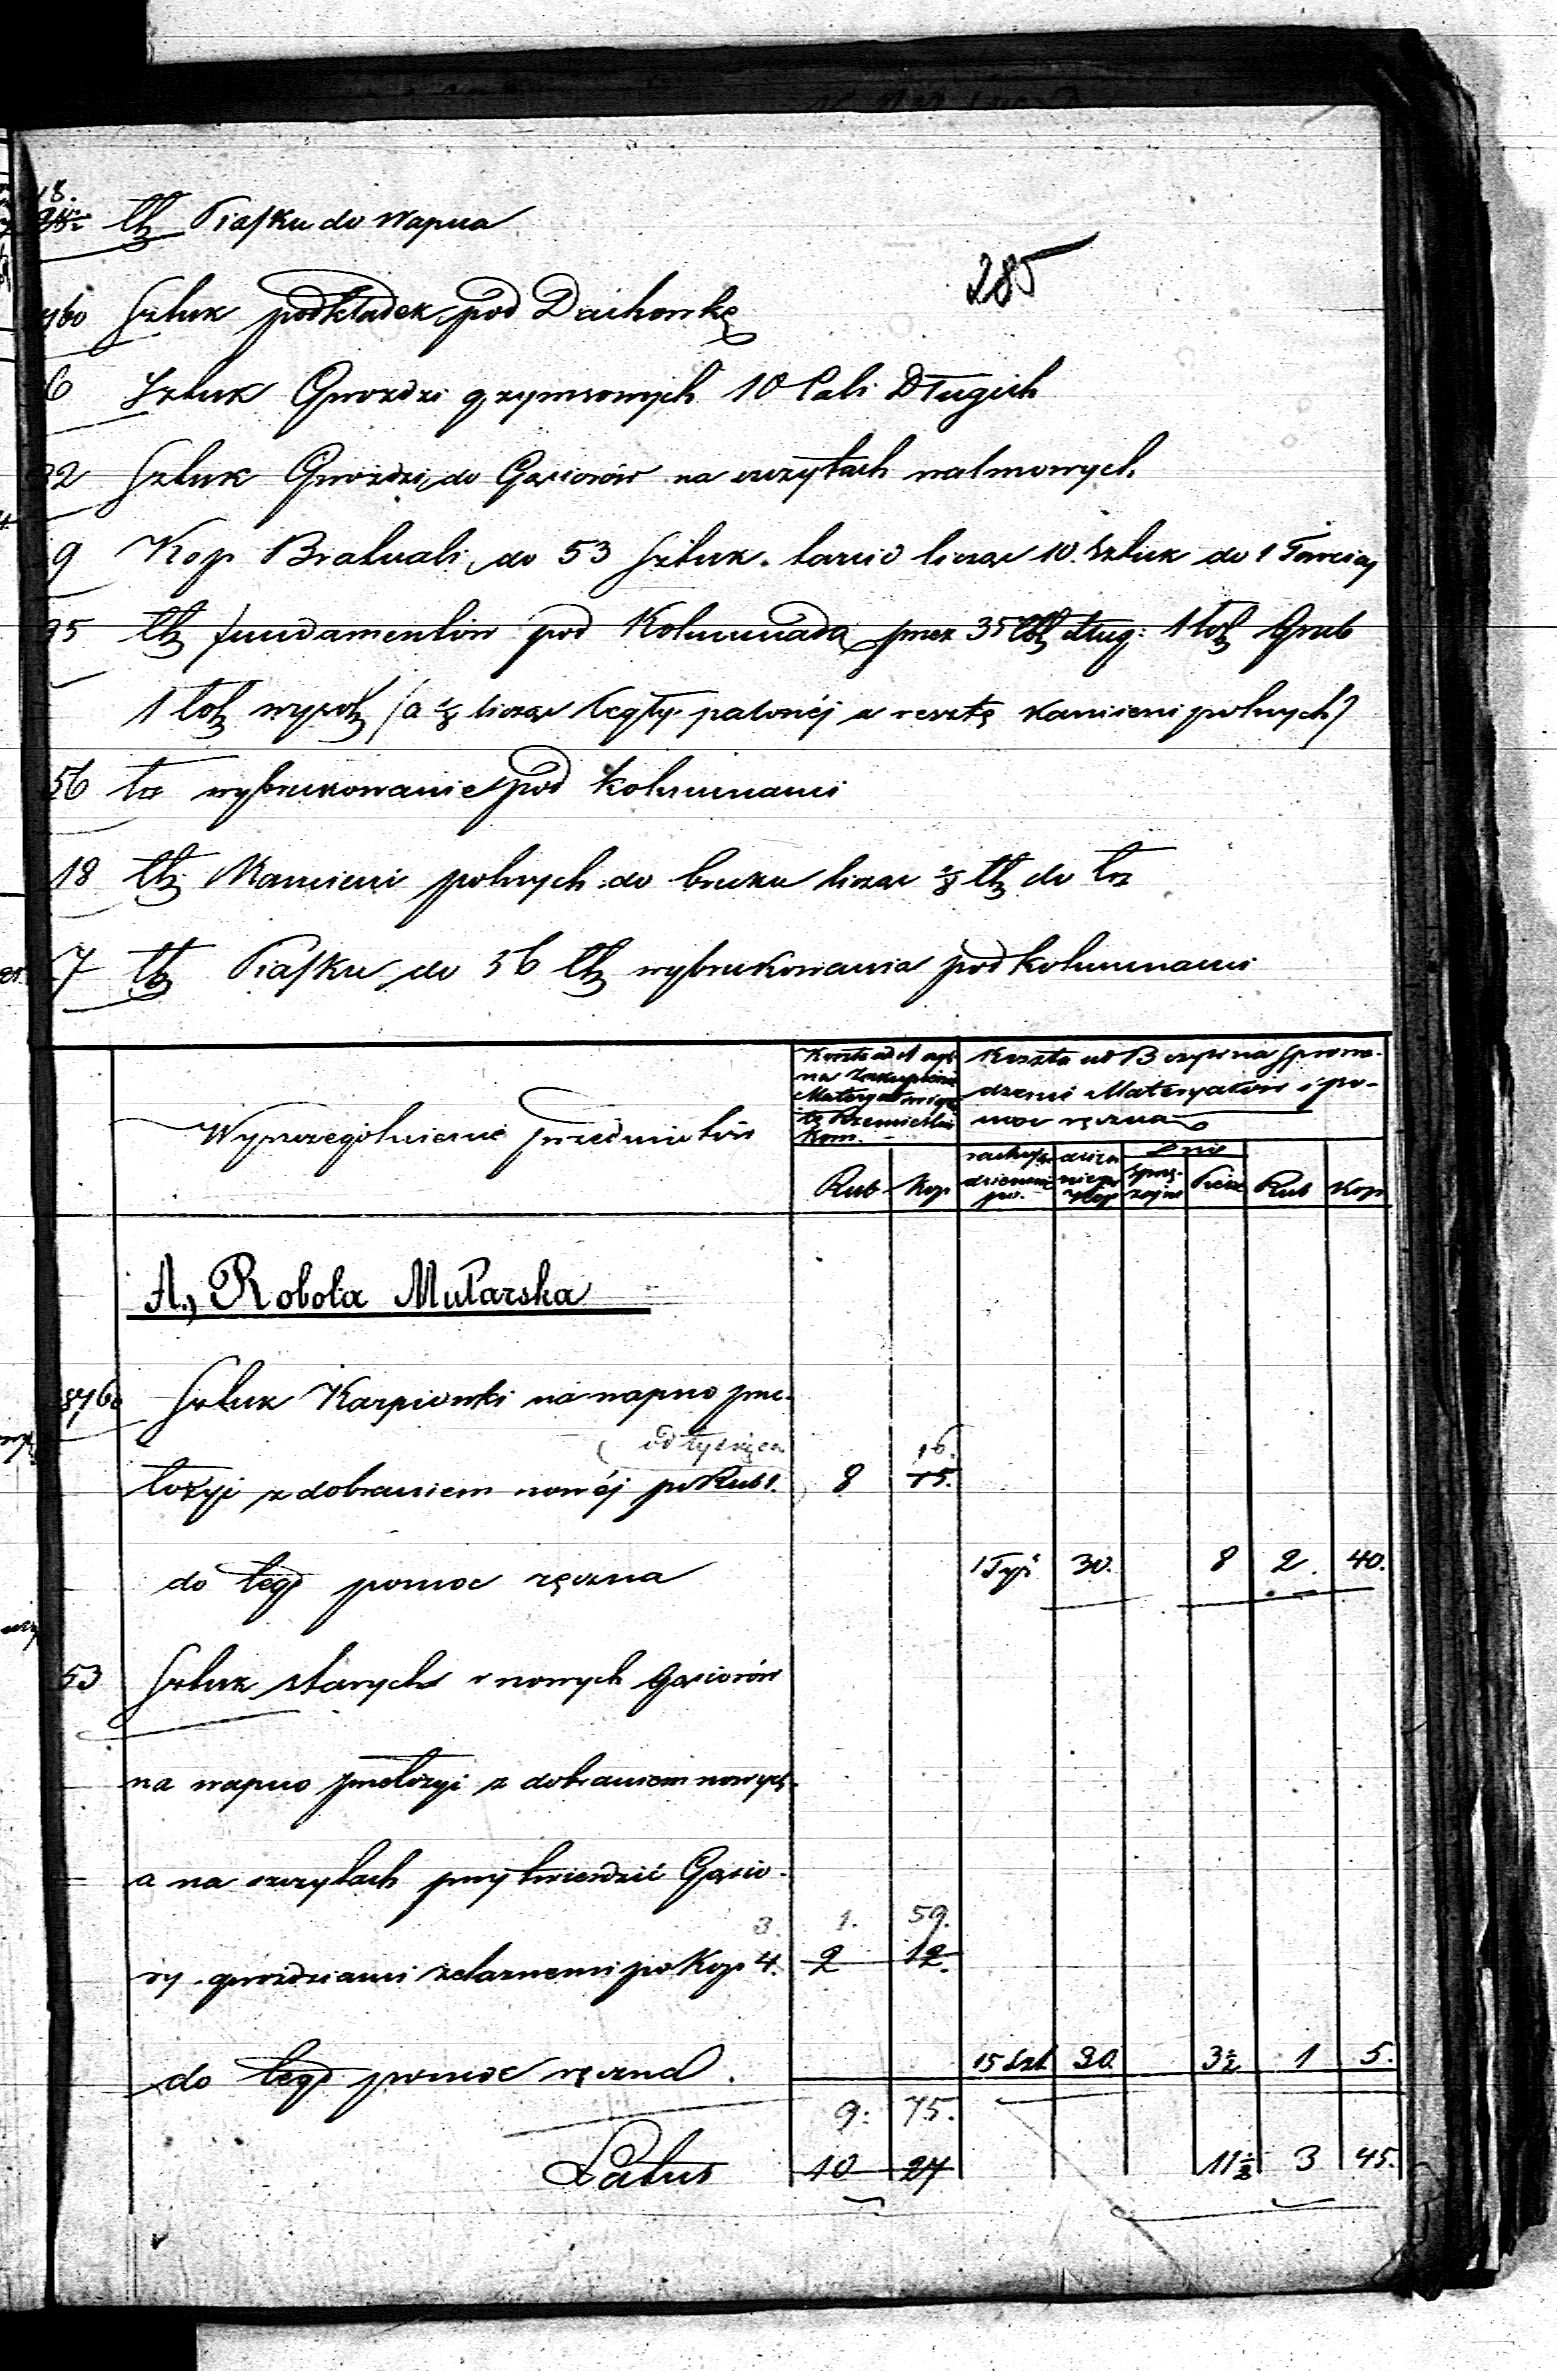 18.
Łłɀ Piasku do Wapna
285
8760 Sztuk podkładek pod Dachowkę
6 Sztuk Gwozdzi gzymsowych 10 Cali Długich
22 Sztuk Gwozdzi do Gąsiorów na szczytach walmowych.
9 Kop Bratnali do 53 Sztuk tarcic licząc 10. Sztuk do 1 Tarcicy
35 fundamentów pod Kolumnadą przez 35 dług: 1 Grub
1 wysok (a licząc Cegły palonéj a resztę kamieni polnych)
56 wybrukowanie pod kolumnami
18 Kamieni polnych do bruku licząc do
7 Piasku do 56 wybrukowania pod kolumnami
Wyszczególnienie przedmiotów
Koszta ad A
na Zakupienie
Materyałów i
Rzemieślni
Kom.
Koszta ad B czyli na sprowa-
dzenie Materyałów i po-
moc ręczna
Rub Kop dziennie po Dnie Sprzę-żajne Piesze Rub Kop
A., Robota Mularska
8760 Sztuk Karpiowki na wapno prze-
od tysiąca 16.
łożyć z dobraniem nowéj po Rub 1. 8 15.
do tego pomoc ręczna 1 Tyś 30. 8 2. 40.
53 Sztuk starych i nowych Gąsiorów
na wapno przełożyć z dobraniem nowych
a na szczytach przytwierdzić Gąsio-
3. 1. 59.
ry gwoździami żelaznemi po Kop 4. 2 12.
do tego pomoc ręczna. 15 Szt 30. 3½ 1 5.
9: 75.
Latus 10 27 11½ 3 45.